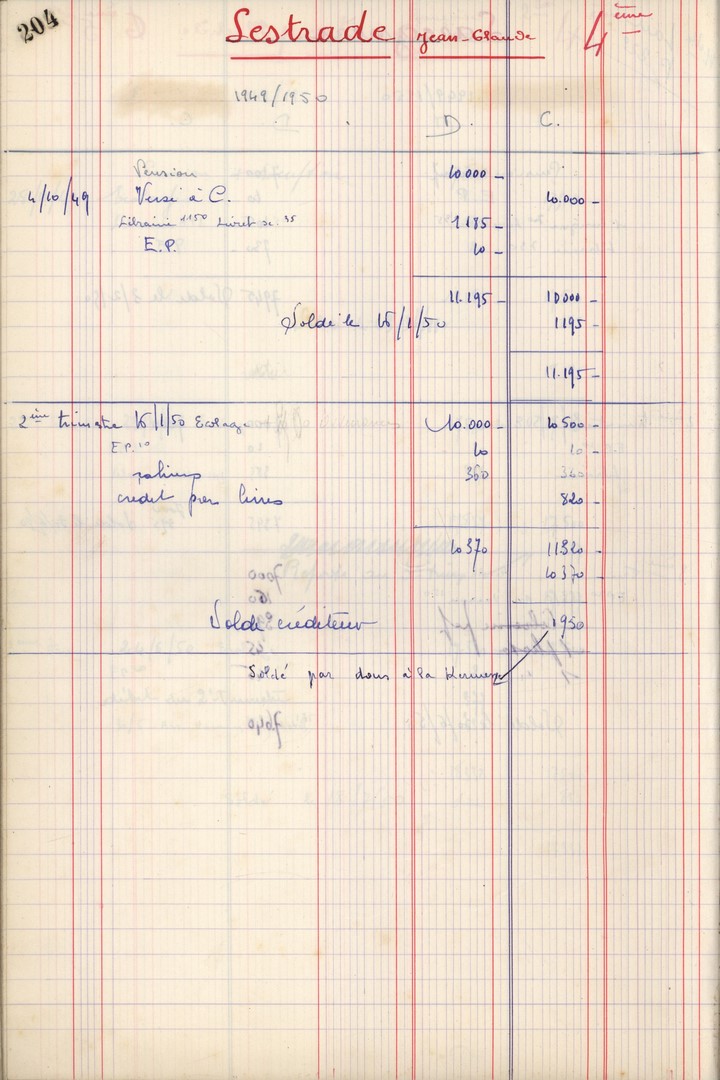 204 Lestrade Jean-Claude 4ème
1949/1950
D. C.
Pension 10000 -
4/10/49 Versé à C. 10.000 -
Librairie 1150 Livret sc. 35 1185 -
E.P. 10 -
11.195 - 10000 -
Solde le 16/1/50 1195 -
11.195 -
2ème trimestre 16/1/50 Ecolage 10.000 - 10500 -
E.P. 10 10 10 -
cahiers 360
credit par livres 820 -
10370 11320 -
10370 -
Solde créditeur 1950
Soldé par dons à la Kermesse